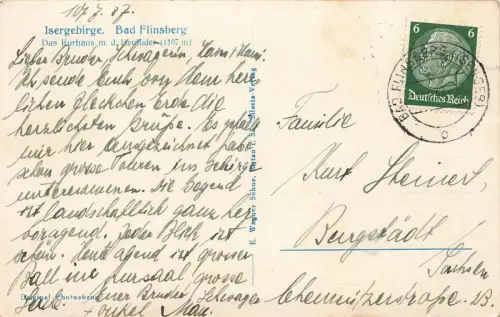 10.7.37.
Isergebirge. Bad Flinsberg
Das Kurhaus m. d. Heufuder (1107 m)
Lieber Bruder, Schwägerin,
Ich sende Euch von dem herr-
lichen Fleckchen Erde die
herzlichsten Grüße. Es gefällt
mir hier ausgezeichnet habe
schon grosse Touren ins Gebirge
unternommen. Die Gegend
ist landschaftlich ganz her-
vorragend. Jeder Blick ist
schön. Heut abend ist grosser
Ball im Kursaal, grosse
Euer Bruder, Schwager
+ Onkel Max.
Original Photographie
E. Wagner Söhne, Zittau i. Sa.
6 6
Deutsches Reich
BAD FLINSBERG (ISERGEB)
c
Familie
Kurt Steinert,
Burgstädt
Sachsen
Chemnitzerstraße 23.